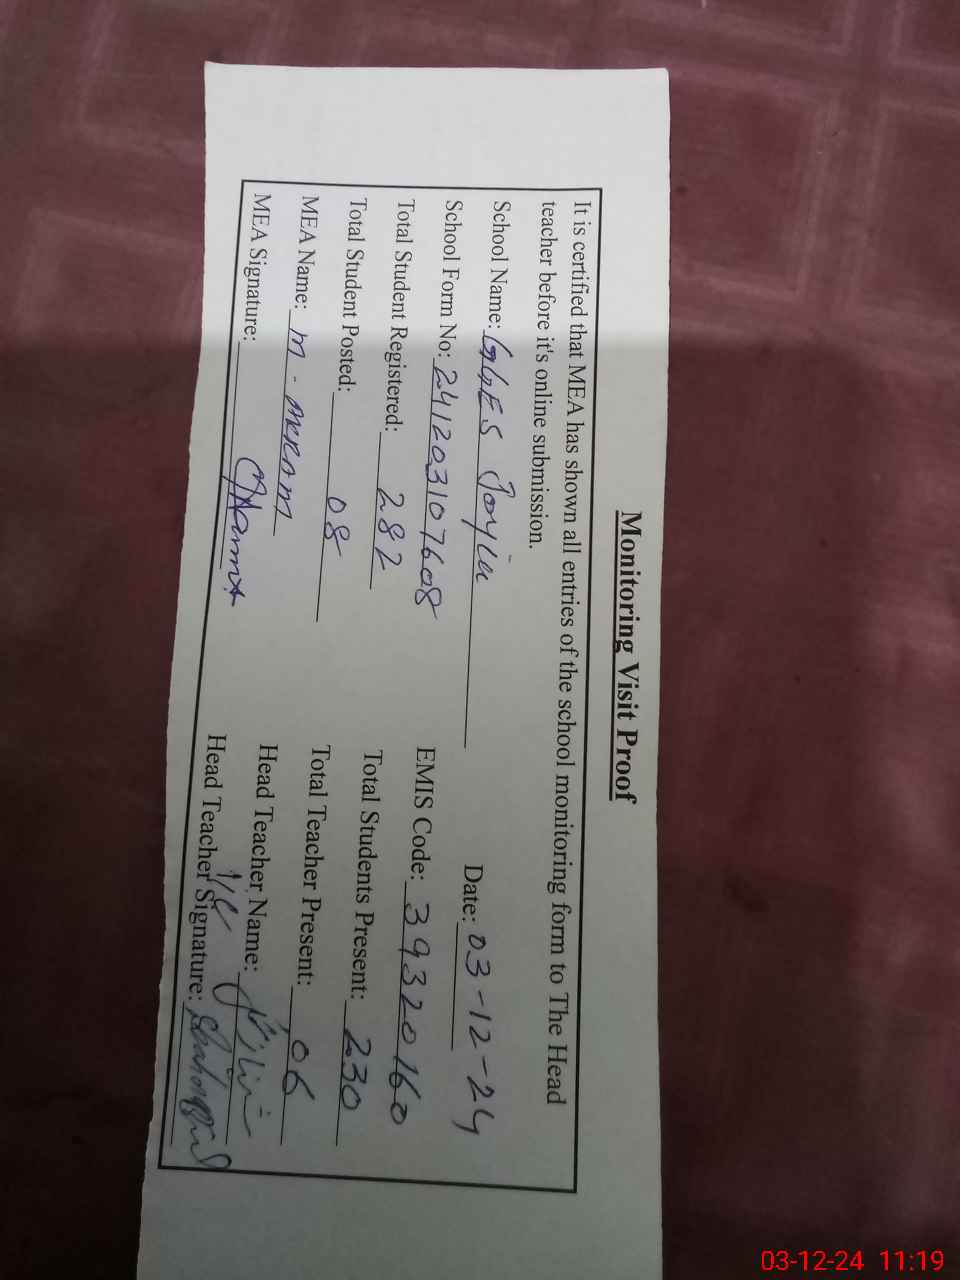 Monitoring Visit Proof
It is certified that MEA has shown all entries of the school monitoring form to The Head
teacher before it's online submission.
Date: 03-12-24
School Name: GGES
School Form No: 241203107608 EMIS Code: 39320160
Total Student Registered: 282 Total Students Present: 230
Total Student Posted: 08 Total Teacher Present: 06
MEA Name: M. Head Teacher Name:
MEA Signature: Head Teacher Signature:
03-12-24 11:19